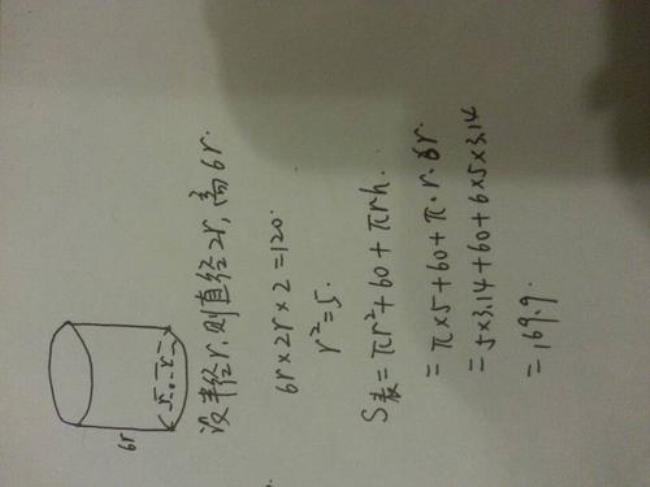 6r
r
设半径r.则直径2r,高6r.
6r×2r×2=120.
r²=5.
S表=πr²+60+πrh.
=π×5+60+π·r·6r.
=5×3.14+60+6×5×3.14
=169.9.